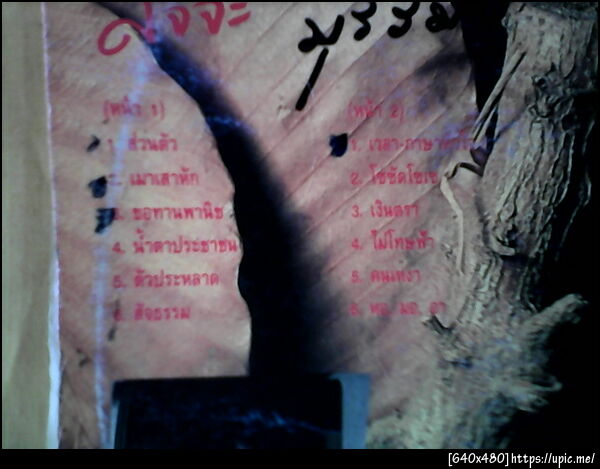 สัจจะ
(หน้า 1)
1. ส่วนตัว
2. เมาเสาหัก
3. ขอทานพานิช
4. น้ำตาประชาชน
5. ตัวประหลาด
6. สัจธรรม
(หน้า 2)
1. เวลา-ภาษา
2. โซซัดโซเซ
3. เงินตรา
4. ไม่โทษฟ้า
5. คนเหงา
6. ทอ. มอ. อา
[640x480]https://upic.me/